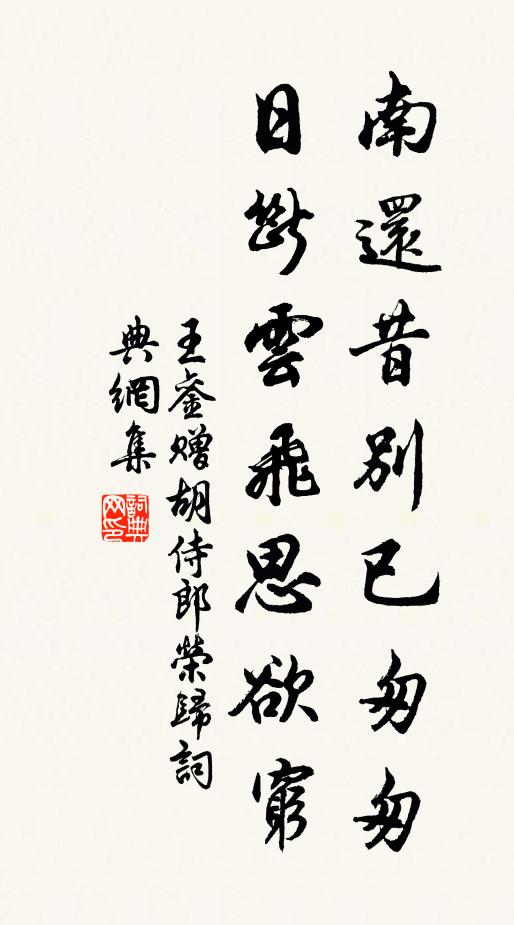 南還昔別已匆匆
日斷雲飛思欲窮
王崟贈胡侍郎榮歸詞
典網集
詞典
网印